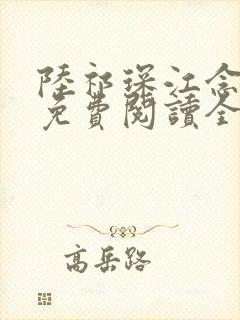 陸祁琛江念
免費閱讀全
高岳路